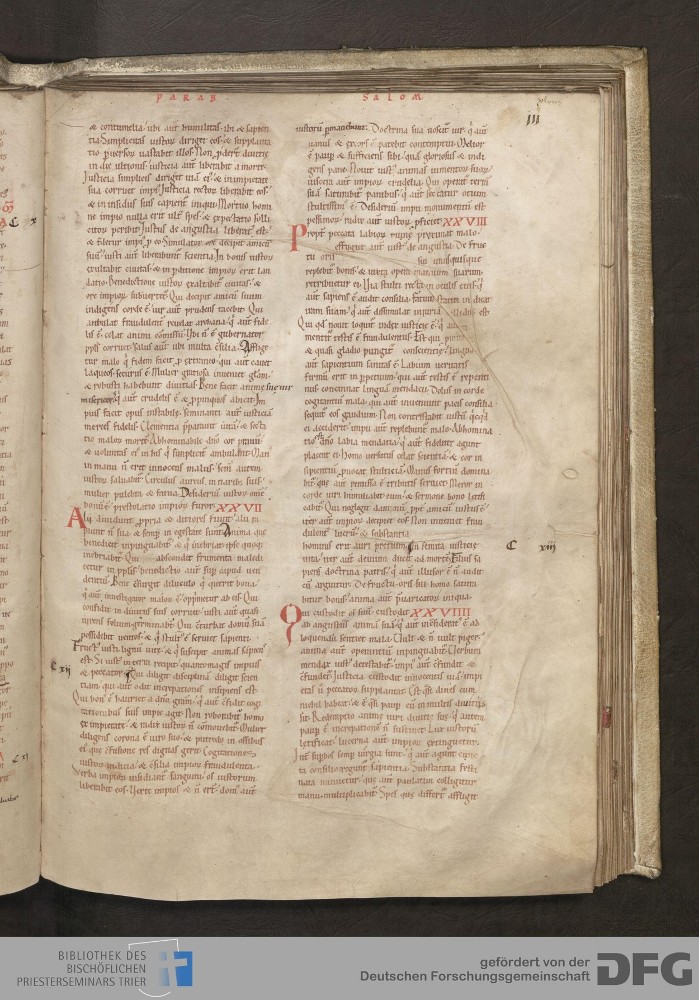 PARAB
SALOM
III
& contumelia. ubi aut humilitas. ibi & sapien
tia. Simplicitas iustorū diriget eos. & supplanta
tio puersoꝝ uastabit illos. Non pderunt diuitie
in die ultionis. iusticia aut liberabit a morte.
Iusticia simplicis diriget uiā ei. & in impietate
sua corruet impi'. Iusticia rectoꝝ liberabit eos.
& in insidiis suis capient iniqui. Mortuo homi
ne impio nulla erit ult spes. & expectatio solli
citoꝝ peribit. Iustus de angustia liberat' est.
& tradetur impi' p eo. Simulator ore decipit amicū
suū. iusti aut liberabunt scientia. In bonis iustoꝝ
exultabit ciuitas. & in pditione impioꝝ erit lau
datio. Benedictione iustoꝝ exaltabit ciuitas. &
ore impioꝝ subuertet. Qui despicit amicū suum
indigens corde ē. uir aut prudens tacebit. Qui
ambulat fraudulent reuelat archana. q aut fide
lis ē celat animi cōmissū. Ubi n ē gubernator
ppls corruet. salus aut ubi multa cōsilia. Afflige
tur malo q fidem facit p extraneo. qui aut cauet
laqueos securus ē. Mulier gratiosa inueniet głam.
& robusti habebunt diuitias. Bene facit anime sue uir
misericors. q aut crudelis ē & ppinquos abicit. Im
pius facit opus instabile. seminanti aut iusticiā
merces fidelis. Clementia pparat uitā. & secta
tio maloꝝ mortē. Abhominabile dno cor prauū.
& uoluntas ei in his q simplicit ambulant. Man'
in manu n erit innocens malus. semen autem
iustoꝝ saluabit. Circulus aureus in narib' suis.
mulier pulchra & fatua. Desideriū iustoꝝ omne
bonū ē. prestolatio impioꝝ furor. XXVII
Alii diuidunt ppria & ditiores fiunt. alii ra
piunt n sua & semp in egestate sunt. Anima que
benedicit inpinguabit. & q inebriat ipse quoq
inebriabit. Qui abscondit frumenta maledi
cetur in pplis. benedictio aut sup caput uen
dentiū. Bene c̄surgit diluculo q querit bona.
q aut inuestigator maloꝝ ē opprimetur ab eis. Qui
confidit in diuitiis suis corruet. iusti aut quasi
uirens foliū germinabt. Qui c̄turbat domū suā
possidebit uentos. & q stult' ē seruiet sapienti.
Fruct' iusti lignū uite. & q suscipit animas sapiens
est. Si iust' in terra recipit. quantomagis impius
& peccator. Qui diligit disciplinā diligit scien
tiam. qui aut odit increpationes insipiens est.
Qui bon' ē hauriet a dno gratiam. q aut c̄fidit cogi
tationibus suis impie agit. Non roborabit homo
ex impietate. & radix iustoꝝ n cōmouebit. Mulier
diligens corona ē uiro suo. & putredo in ossibus
ei que c̄fusione res dignas gerit. Cogitationes
iustoꝝ iudicia. & cōsilia impioꝝ fraudulenta.
Verba impioꝝ insidiant sanguini. os iustorum
liberabit eos. Verte impios & n erunt. dom' aut
C xii
iustorū pmanebunt. Doctrina sua noscet uir. q aut
uanus & excors ē patebit contemptui. Melior
ē paup & sufficiens sibi. quā gloriosus & indi
gens pane. Nouit iust' animas iumentoꝝ suoꝝ.
uiscera aut impioꝝ crudelia. Qui operat terrā
suā satiabit panibus. q aut sectatur ocium
stultissim' ē. Desideriū impii monumentū est
pessimoꝝ. radix aut iustoꝝ pficiet. XXVIII
Propt peccata labioꝝ ruina proximat malo.
effugiet aut iust' de angustia. De fruc
tu oris sui unusquisque
replebit bonis. & iuxta opera manuum suarum
retribuetur ei. Via stulti recta in oculis eius. q
aut sapiens ē audit consilia. Fatuus statim indicat
iram suam. q aut dissimulat iniuriā callidus est.
Qui qd nouit loquit index iusticie ē. q aut
mentit testis ē fraudulentus. Est qui pmittit
& quasi gladio pungit conscientie. lingua
aut sapientium sanitas ē. Labium ueritatis
firmū erit in ppetuum. qui aut testis ē repenti
nus concinnat linguā mendacii. Dolus in corde
cogitantiū mala. qui aut ineunt pacis consilia
sequit eos gaudium. Non contristabit iustū qcqd
ei acciderit. impii aut replebunt malo. Abhomina
tio dno labia mendatia. q aut fideliter agunt
placent ei. Homo uersutus celat scientiā. & cor in
sipientiū puocat stulticiā. Manus fortiū domina
bit. que aut remissa ē tributis seruiet. Meror in
corde uiri humiliabit eum. & sermone bono letifi
cabit. Qui negligit damnū ppt amicū iustus ē.
iter aut impioꝝ decipiet eos. Non inueniet frau
dulent' lucrū. & substantia
hominis erit auri precium. In semita iusticie
uita. iter aut deuium ducit ad mortē. Filius sa
piens doctrina patris. q aut illusor ē n audit
cū arguitur. De fructu oris sui homo satia
bitur bonis. anima aut puaricatoꝝ iniqua.
Qui custodit os suū custodit XXVIIII
Ob angustiis animā suā. q aut incōsiderat' ē ad
loquendū sentiet mala. Uult & n uult piger.
anima aut operantiū inpinguabit. Verbum
mendax iust' detestabit. impi' aut c̄fundit &
c̄fundet'. Iusticia custodit innocentis uiā. impi
etas u peccatoꝝ supplantat. Est qsi diues cum
nichil habeat. & ē qsi paup cū in multis diuitiis
sit. Redemptio anime uiri diuitie sue. q autem
paup ē increpatione n sustinet. Lux iustorū
letificat. lucerna aut impioꝝ extinguetur.
Int supbos semp iurgia sunt. q aut agunt cunc
ta consilio regunt sapientia. Substantia festi
nata minuetur. que aut paulatim colligitur
manu multiplicabit. Spes que differt affligit
C xiii
BIBLIOTHEK DES
BISCHÖFLICHEN
PRIESTERSEMINARS TRIER
gefördert von der
Deutschen Forschungsgemeinschaft
DFG